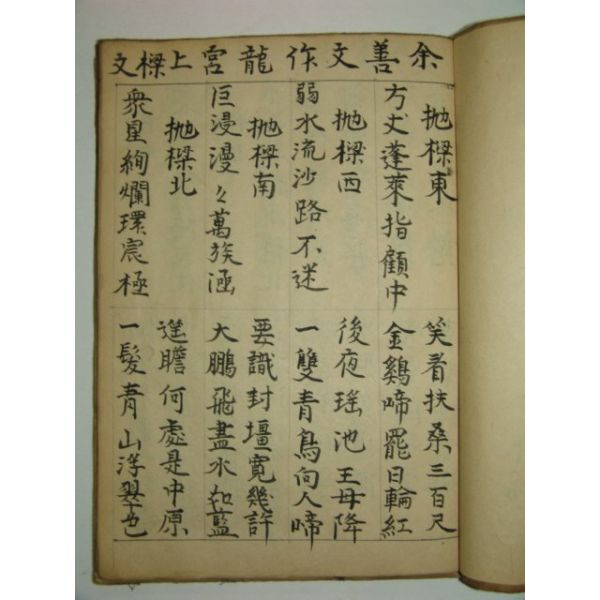 余善文作龍宮上樑文
抛樑東
方丈蓬萊指顧中
笑看扶桑三百尺
金鷄啼罷日輪紅
抛樑西
弱水流沙路不迷
後夜瑤池王母降
一雙青鳥向人啼
抛樑南
巨浸漫々萬族涵
要識封壃寬幾許
大鵬飛盡水如藍
抛樑北
衆星絢爛環宸極
遥瞻何處是中原
一髮青山浮翠色